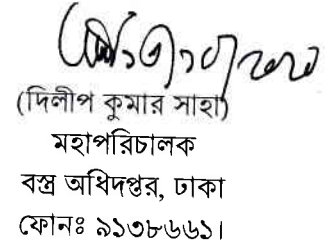 (দিলীপ কুমার সাহা)
মহাপরিচালক
বস্ত্র অধিদপ্তর, ঢাকা
ফোনঃ ৯১৩৮৬৬১।